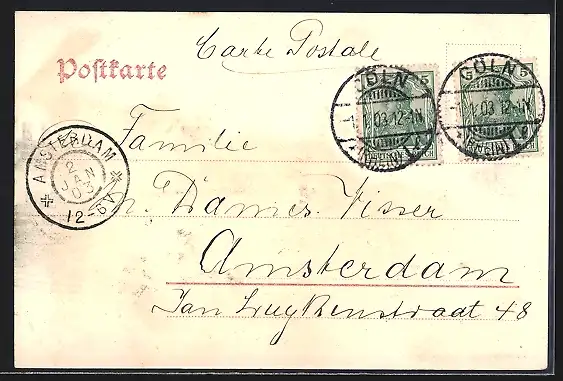 Carte Postale
Postkarte
5 5
CÖLN
1 03 12-1N
(RHEIN)
CÖLN
1 03 12-1N
(RHEIN)
Familie
AMSTERDAM
2
JAN
03
12-6A
Dames Visser
Amsterdam
Jan Luykenstraat 48